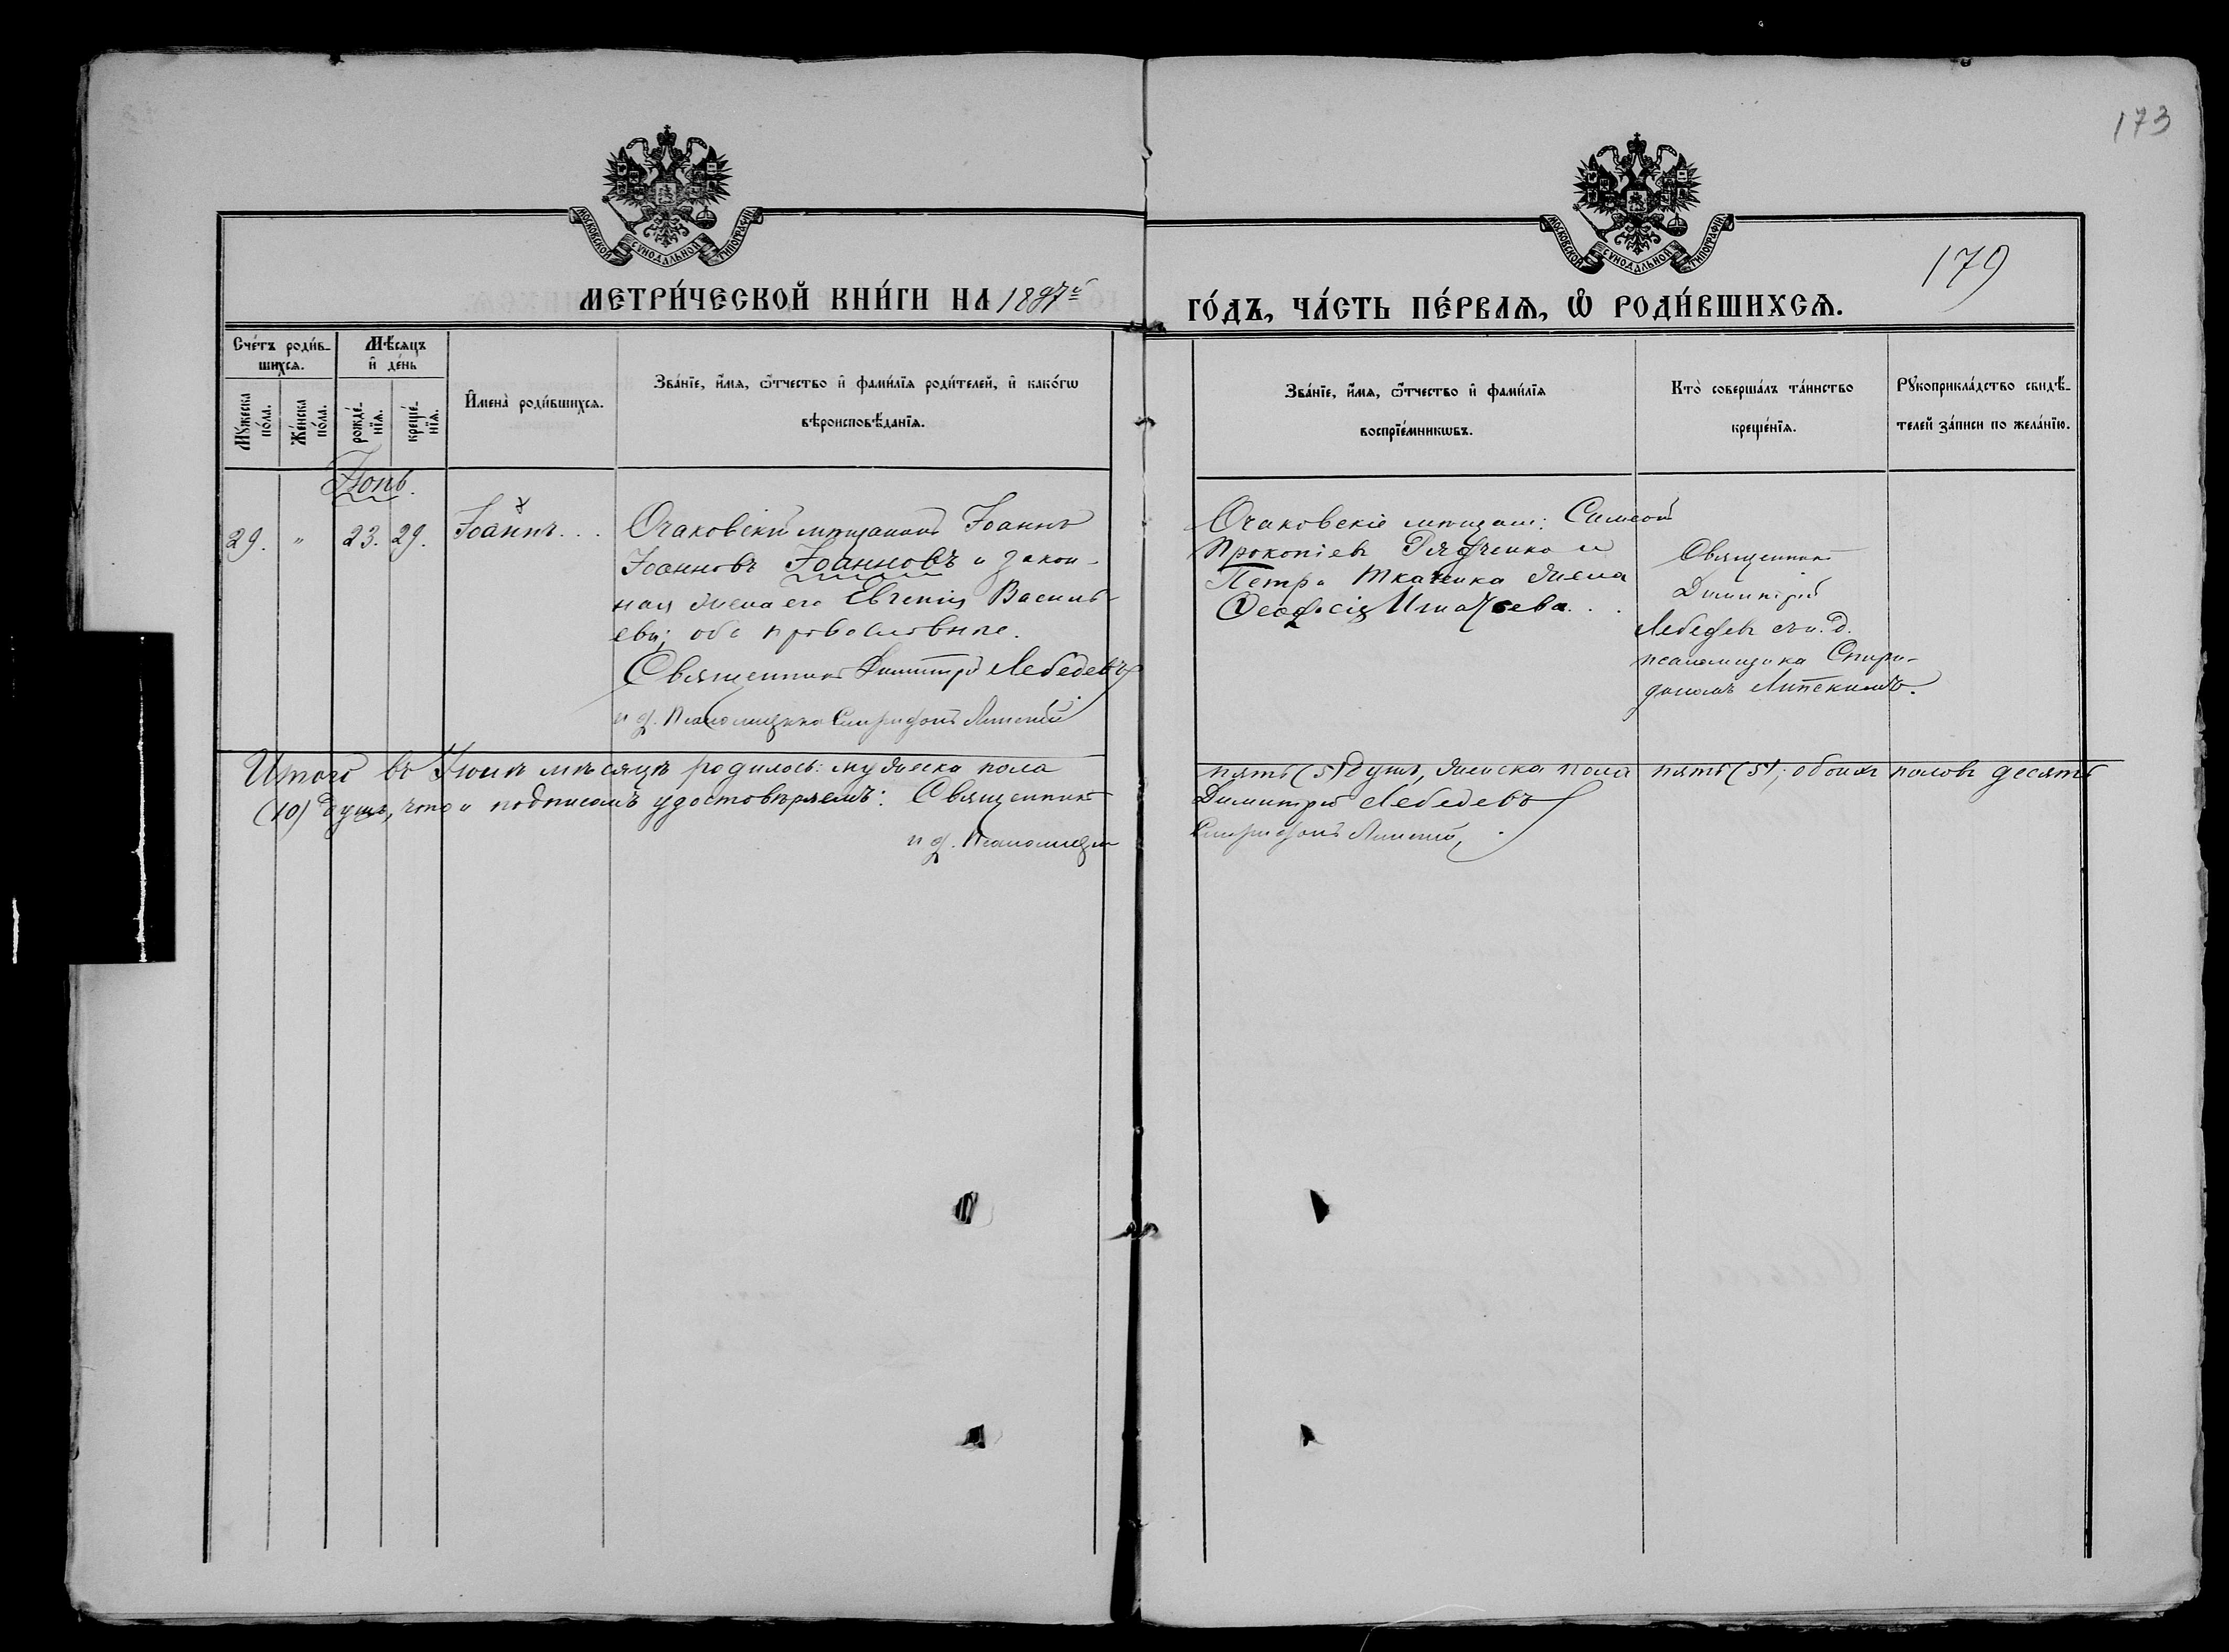 173
179
МОСКОВСКОЙ СУНОДАЛЬНОЙ ТИПОГРАФІИ
МОСКОВСКОЙ СУНОДАЛЬНОЙ ТИПОГРАФІИ
МЕТРИ́ЧЕСКОЙ КНИ́ГИ НА 1897й
ГО́ДЪ, ЧА́СТЬ ПЕ́РВАѦ, Ѡ҆ РОДИ́ВШИХСѦ.
Сче́тъ роди́в-
шихсѧ.
Мꙋ́жеска по́ла.
Же́нска по́ла.
Мѣ́сѧцъ
и҆ де́нь
рожде́-
нїѧ.
креще́-
нїѧ.
И҆мена̀ роди́вшихсѧ.
Зва́нїе, и҆́мѧ, ѻ҆́тчество и҆ фами́лїѧ роди́телей, и҆ како́гѡ
вѣроисповѣ́данїѧ.
Зва́нїе, и҆́мѧ, ѻ҆́тчество и҆ фами́лїѧ
воспрїе́мникѡвъ.
Кто̀ соверша́лъ та́инство
креще́нїѧ.
Рꙋкоприкла́дство свидѣ́-
телей за́писи по жела́нїю.
Іюнь.
29. " 23. 29.
Іоаннъ...
Очаковскій мѣщанинъ Іоаннъ
Іоанновъ Іоанновъ и закон-
ная жена его Евгенія Василь-
ева; оба православные.
Священникъ Димитрій Лебедевъ
и д. Псаломщика Спиридонъ Липскій
Очаковскіе мѣщане: Симеонъ
Прокопіевъ Рябченко и
Петра Ткаченка жена
Ѳеодосія Игнатьева...
Священникъ
Димитрій
Лебедевъ съ и. д.
псаломщика Спири-
дономъ Липскимъ.
Итого въ Іюнѣ мѣсяцѣ родилось: мужеска пола пять (5) душъ, женска пола пять (5); обоихъ половъ десять
(10) душъ, что и подписомъ удостовѣряемъ: Священникъ Димитрій Лебедевъ
и д. Псаломщика Спиридонъ Липскій